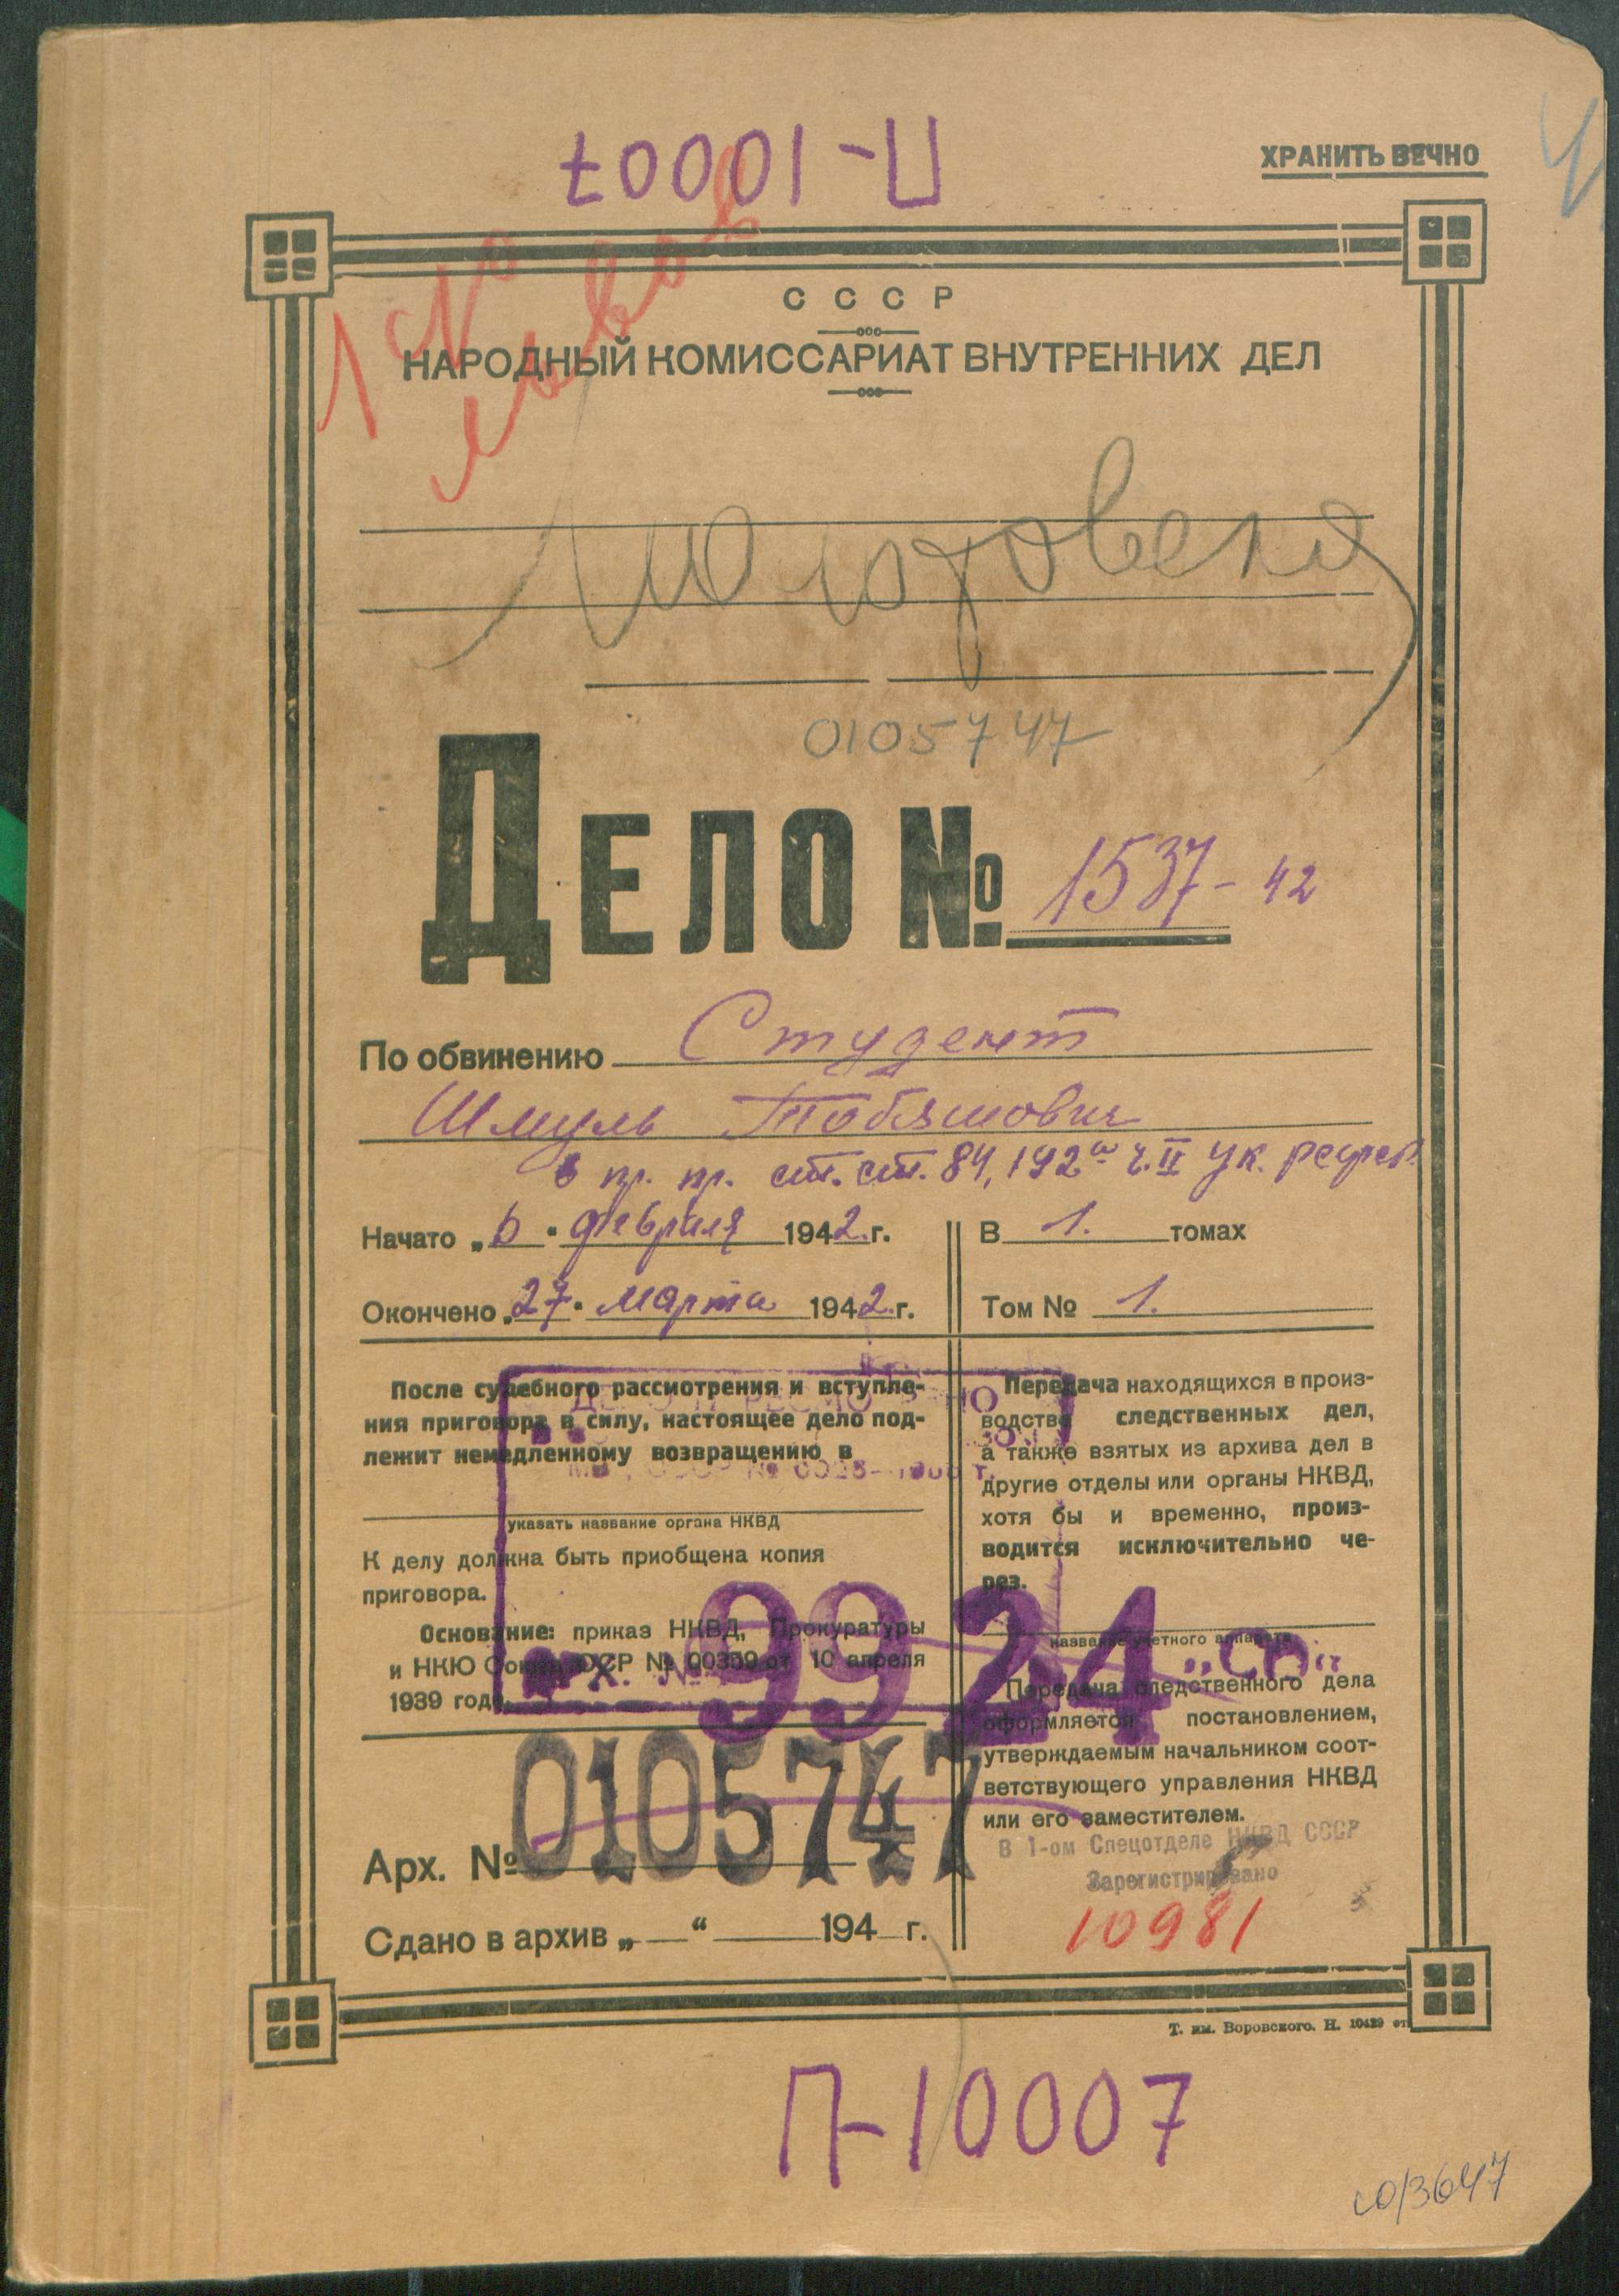 П-10007
ХРАНИТЬ ВЕЧНО
СССР
НАРОДНЫЙ КОМИССАРИАТ ВНУТРЕННИХ ДЕЛ
0105747
ДЕЛО № 1537-42
По обвинению Студент
Шмуль Тобяшович
в пр. пр. ст. ст. 84, 192а ч. II УК. РСФСР
Начато „6" февраля 1942 г.
В 1. томах
Окончено „27" марта 1942 г.
Том № 1.
После судебного рассмотрения и вступле-
ния приговора в силу, настоящее дело под-
лежит немедленному возвращению в
указать название органа НКВД
К делу должна быть приобщена копия
приговора.
Основание: приказ НКВД, Прокуратуры
и НКЮ Союза ССР № 00359 от 10 апреля
1939 года.
Передача находящихся в произ-
водстве следственных дел,
а также взятых из архива дел в
другие отделы или органы НКВД,
хотя бы и временно, произ-
водится исключительно че-
рез.
название учетного аппарата
Передача следственного дела
оформляется постановлением,
утверждаемым начальником соот-
ветствующего управления НКВД
или его заместителем.
АРХ. № 9924 „СП"
Арх. № 0105747
В 1-ом Спецотделе НКВД СССР
Зарегистрировано
10981
Сдано в архив „ " 194 г.
Т. им. Воровского. Н. 10429 от
П-10007